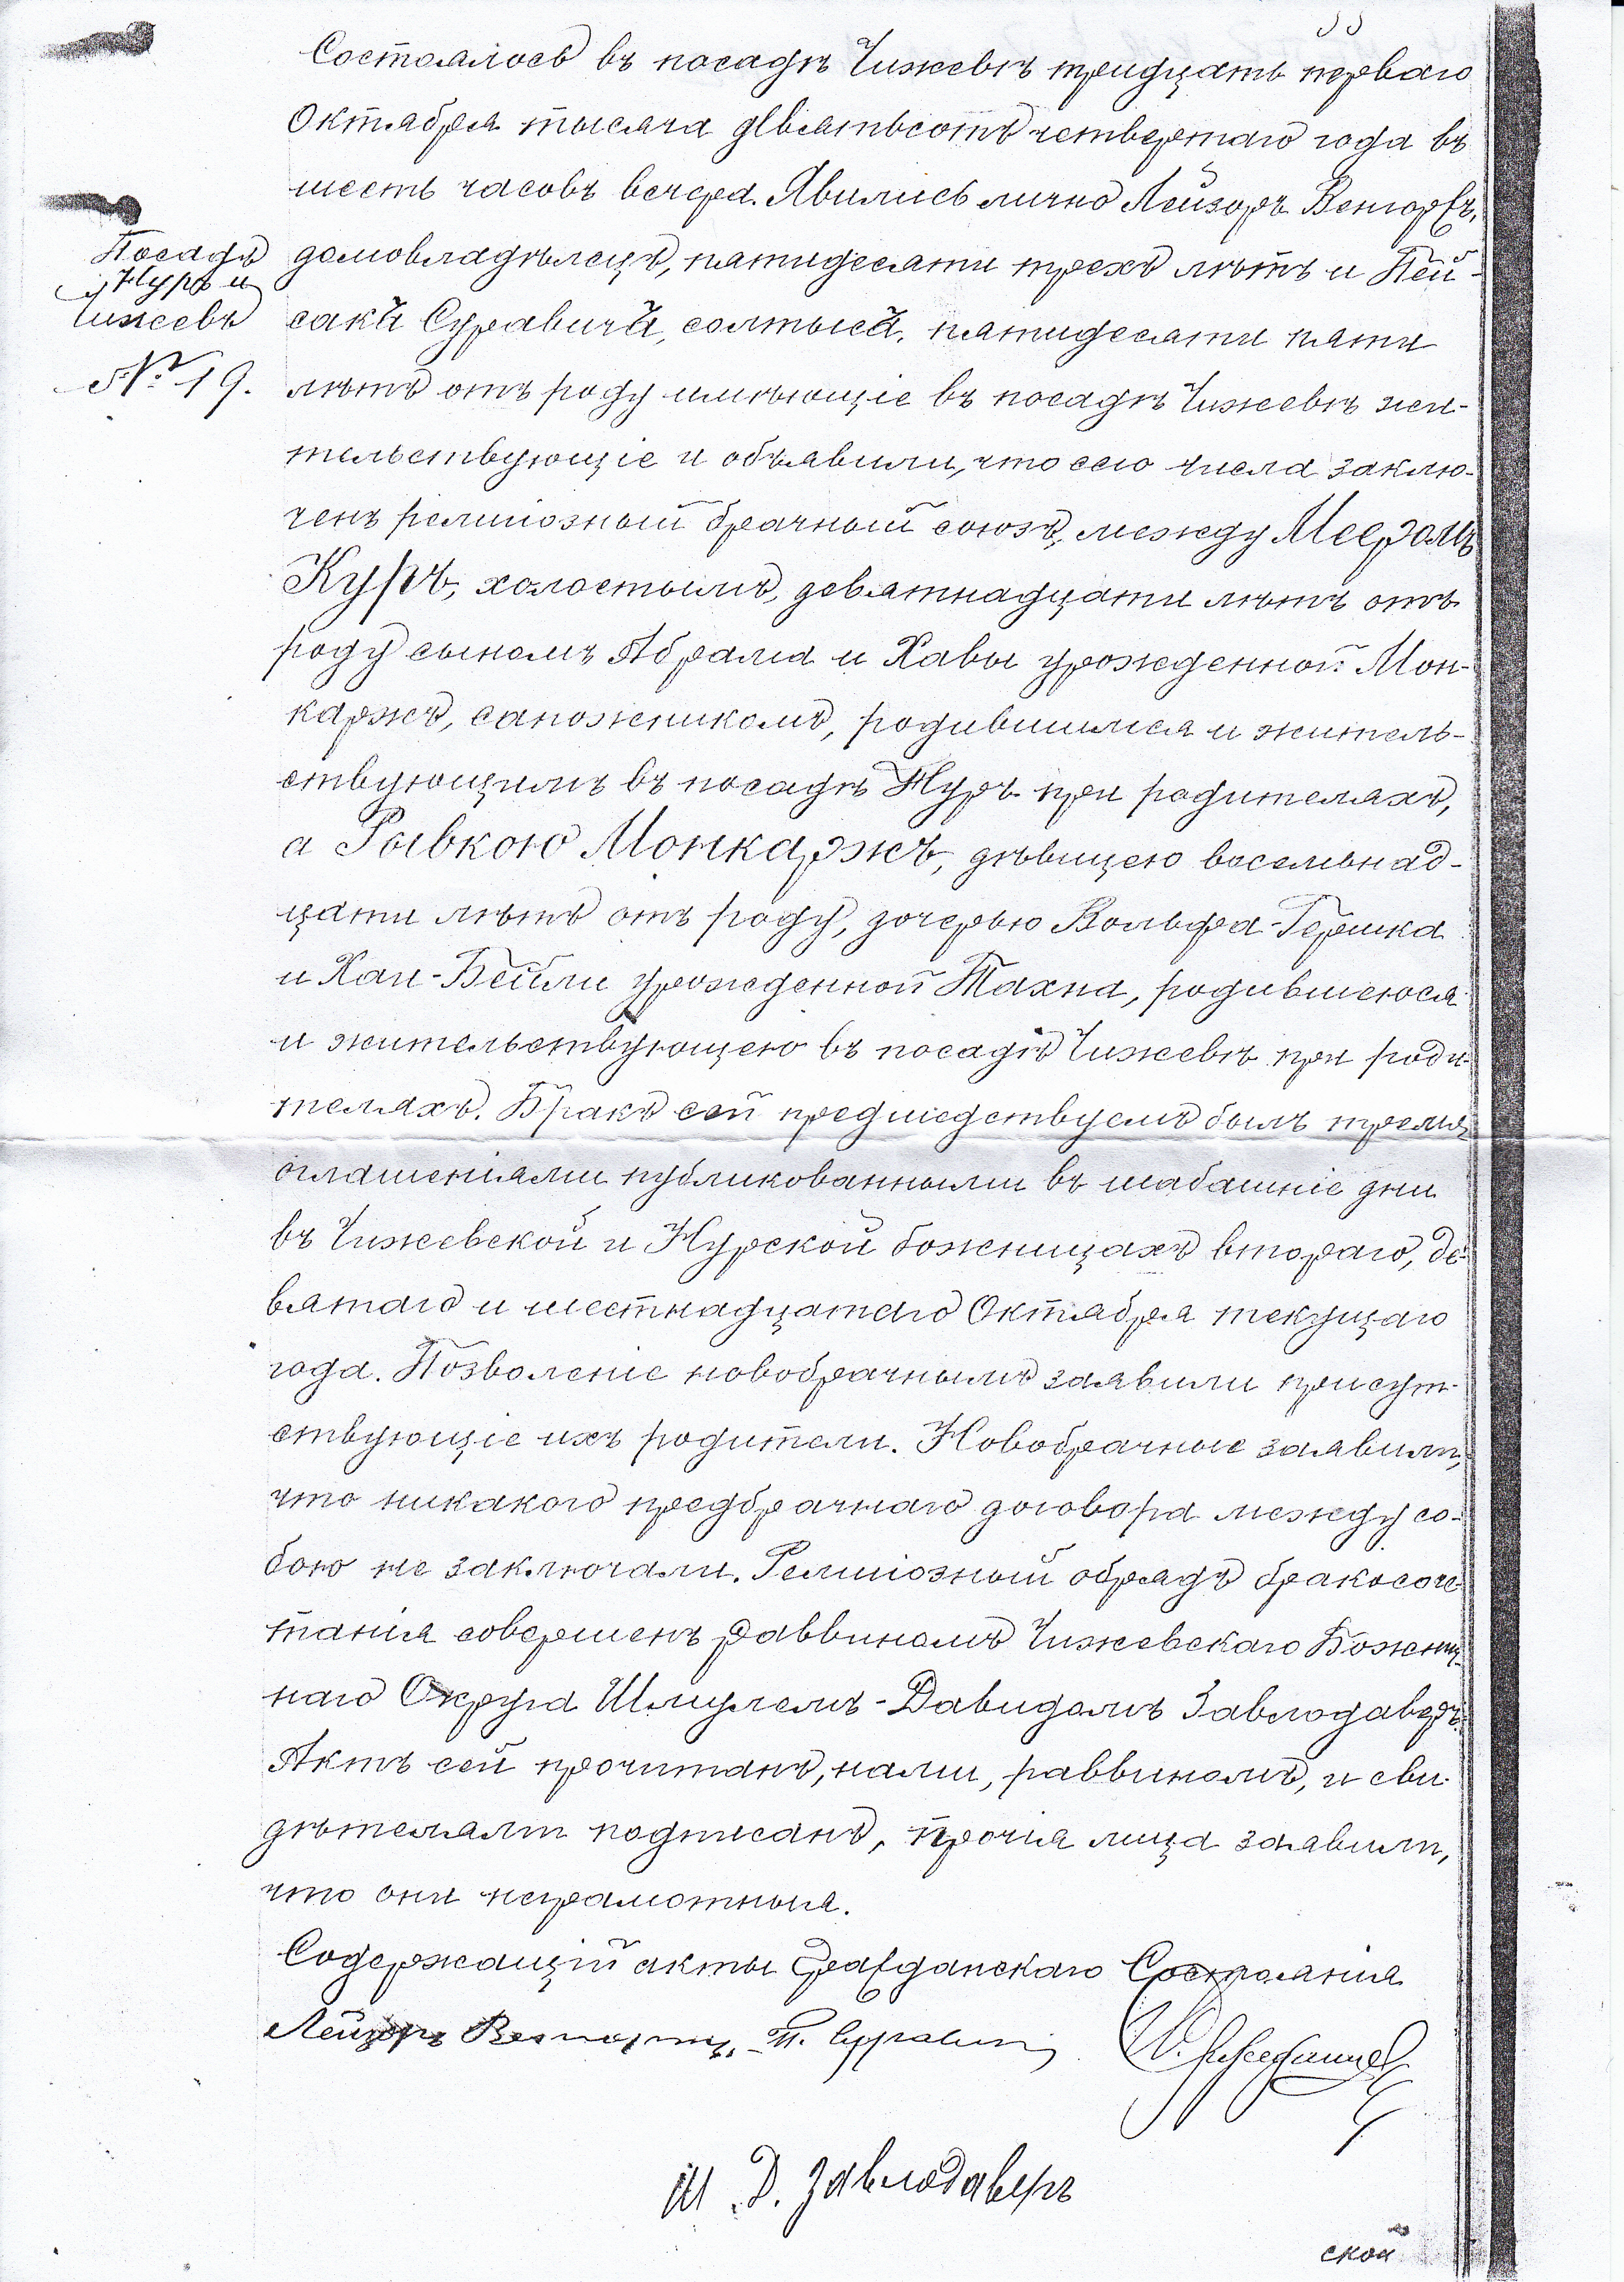 Состоялось въ посадѣ Чижевѣ тридцать перваго
Октября тысяча девятьсотъ четвертаго года въ
шесть часовъ вечера. Явились лично Лейзоръ Венгоржъ,
Посадъ
Нуръ и
Чижевъ
№ 19.
домовладѣлецъ, пятидесяти трехъ лѣтъ и Пей-
сакъ Суравичъ, солтысъ, пятидесяти пяти
лѣтъ отъ роду имѣющіе въ посадѣ Чижевѣ жи-
тельствующіе и объявили, что сего числа заклю-
ченъ религіозный брачный союзъ, между Мееромъ
Куръ, холостымъ, девятнадцати лѣтъ отъ
роду сыномъ Абрама и Хавы урожденной Мон-
каржъ, сапожникомъ, родившимся и житель-
ствующимъ въ посадѣ Нуръ при родителяхъ,
а Рывкою Монкаржъ, дѣвицею восемьнад-
цати лѣтъ отъ роду, дочерью Вольфа-Гершка
и Хаи-Бейли урожденной Тахна, родившеюся
и жительствующею въ посадѣ Чижевѣ при роди-
теляхъ. Бракъ сей предшедствуемъ былъ тремя
оглашеніями публикованными въ шабашніе дни
въ Чижевской и Нурской божницахъ втораго, де-
вятаго и шестнадцатаго Октября текущаго
года. Позволеніе новобрачнымъ заявили присут-
ствующіе ихъ родители. Новобрачные заявили,
что никакого предбрачнаго договора между со-
бою не заключали. Религіозный обрядъ бракосоче-
танія совершенъ раввиномъ Чижевскаго Божнич-
наго Округа Шмулемъ-Давидомъ Завлодаверъ.
Актъ сей прочитанъ, нами, раввиномъ, и сви-
дѣтелями подписанъ, прочія лица заявили,
что они неграмотныя.
Содержащій акты Гражданскаго Состоянія
Лейзоръ Венгоржъ, П. Суравич
Ш. Д. Завлодаверъ
ской